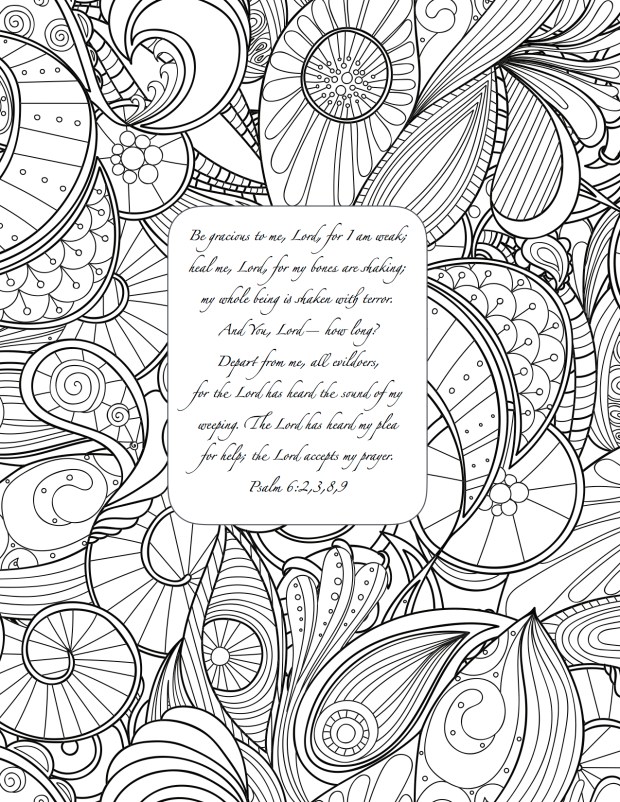 Be gracious to me, Lord, for I am weak;
heal me, Lord, for my bones are shaking;
my whole being is shaken with terror.
And You, Lord— how long?
Depart from me, all evildoers,
for the Lord has heard the sound of my
weeping. The Lord has heard my plea
for help; the Lord accepts my prayer.
Psalm 6:2,3,8,9